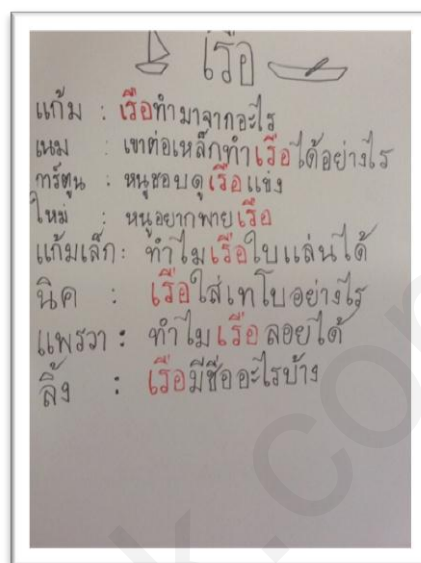 เรือ
แก้ม : เรือทำมาจากอะไร
เนม : เขาต่อเหล็กทำเรือได้อย่างไร
การ์ตูน : หนูชอบดูเรือแข่ง
ใหม่ : หนูอยากพายเรือ
แก้มเล็ก : ทำไมเรือใบแล่นได้
นิค : เรือใส่เทโบอย่างไร
แพรวา : ทำไมเรือลอยได้
ลิ้ง : เรือมีชื่ออะไรบ้าง